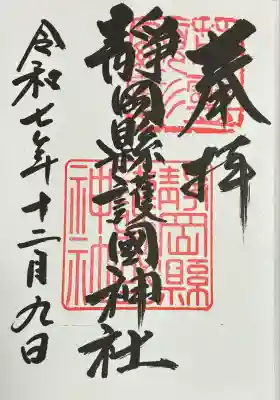 奉拝
靜岡縣護國神社
令和七年十二月九日
靜岡縣
神社